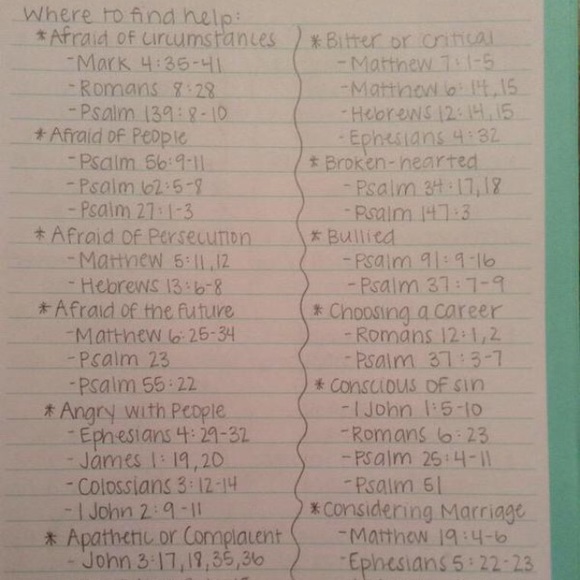 Where to find help:
*Afraid of circumstances
-Mark 4:35-41
-Romans 8:28
-Psalm 139:8-10
*Afraid of People
-Psalm 56:9-11
-Psalm 62:5-8
-Psalm 27:1-3
*Afraid of Persecution
-Matthew 5:11,12
-Hebrews 13:6-8
*Afraid of the future
-Matthew 6:25-34
-Psalm 23
-Psalm 55:22
*Angry with People
-Ephesians 4:29-32
-James 1:19,20
-Colossians 3:12-14
-1 John 2:9-11
*Apathetic or Complacent
-John 3:17,18,35,36
*Bitter or critical
-Matthew 7:1-5
-Matthew 6:14,15
-Hebrews 12:14,15
-Ephesians 4:32
*Broken-hearted
-Psalm 34:17,18
-Psalm 147:3
*Bullied
-Psalm 91:9-16
-Psalm 37:7-9
*Choosing a Career
-Romans 12:1,2
-Psalm 37:3-7
*Conscious of sin
-1 John 1:5-10
-Romans 6:23
-Psalm 25:4-11
-Psalm 51
*Considering Marriage
-Matthew 19:4-6
-Ephesians 5:22-23